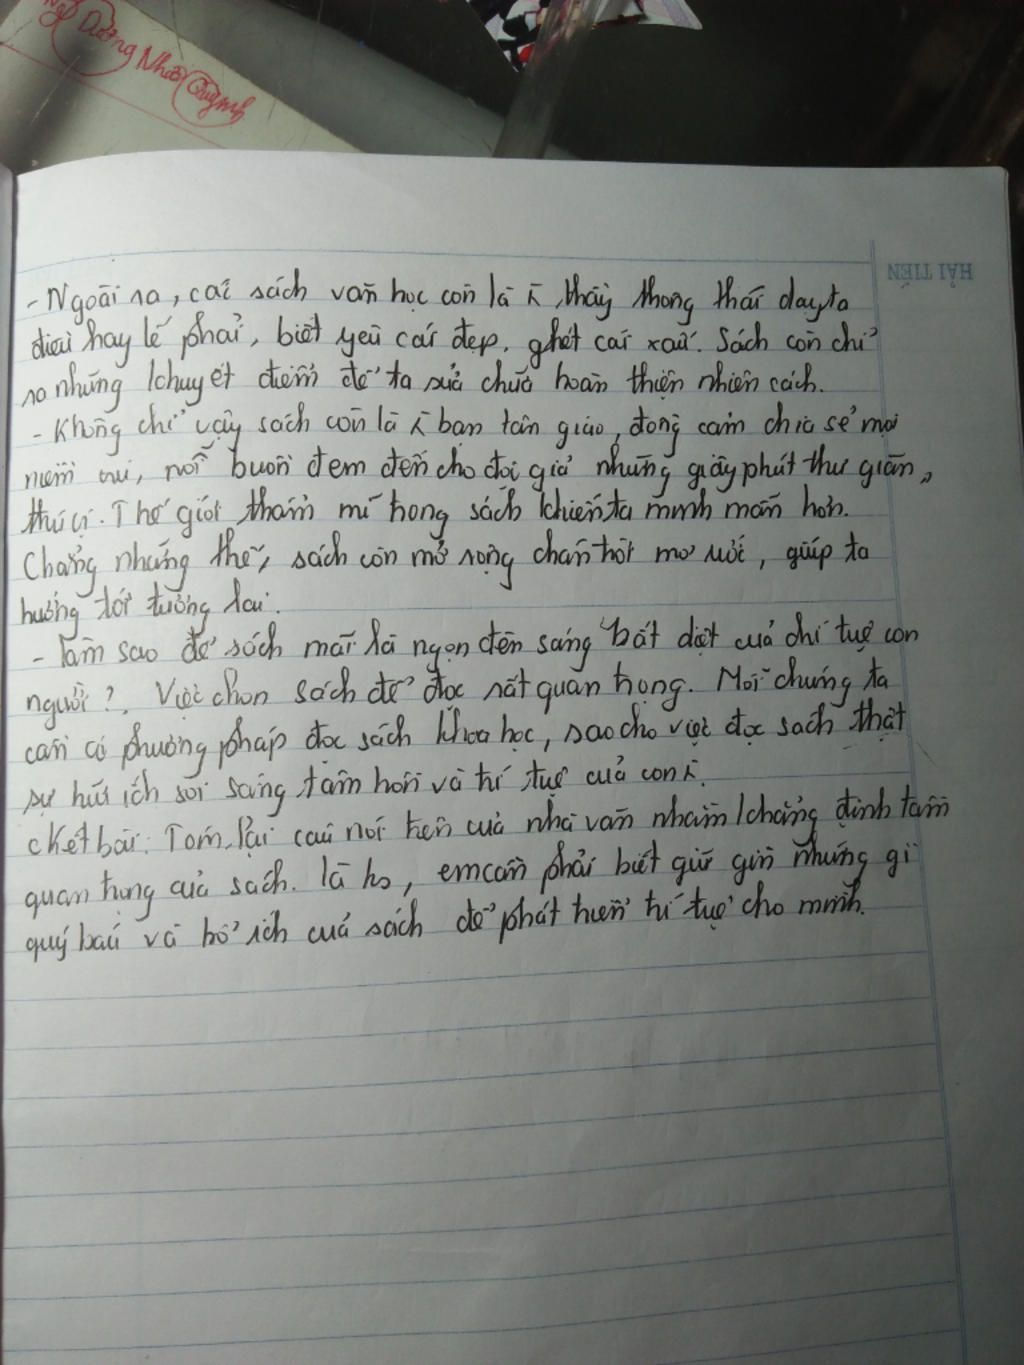 Dương Như Quỳnh
HẢI TIẾN
- Ngoài ra, các sách văn học còn là người thầy thong thái dạy ta
điều hay lẽ phải, biết yêu cái đẹp, ghét cái xấu. Sách còn chỉ
ra những khuyết điểm để ta sửa chữa hoàn thiện nhiên cách.
- Không chỉ vậy sách còn là người bạn tân giao, đồng cảm chia sẻ mọi
niềm vui, nỗi buồn đem đến cho đọc giả những giây phút thư giãn,
thú vị. Thế giới thẩm mĩ trong sách khiến ta minh mẫn hơn.
Chẳng những thế, sách còn mở rộng chân trời mơ ước, giúp ta
hướng tới tương lai.
- Làm sao để sách mãi là ngọn đèn sáng bất diệt của chí tuệ con
người?. Việc chọn sách để đọc rất quan trọng. Mỗi chúng ta
cần có phương pháp đọc sách khoa học, sao cho việc đọc sách thật
sự hữu ích soi sáng tâm hồn và trí tuệ của con người.
c Kết bài: Tóm lại câu nói trên của nhà văn nhằm khẳng định tầm
quan trọng của sách. Là hs, em cần phải biết giữ gìn những gì
quý báu và bổ ích của sách để phát triển trí tuệ cho mình.